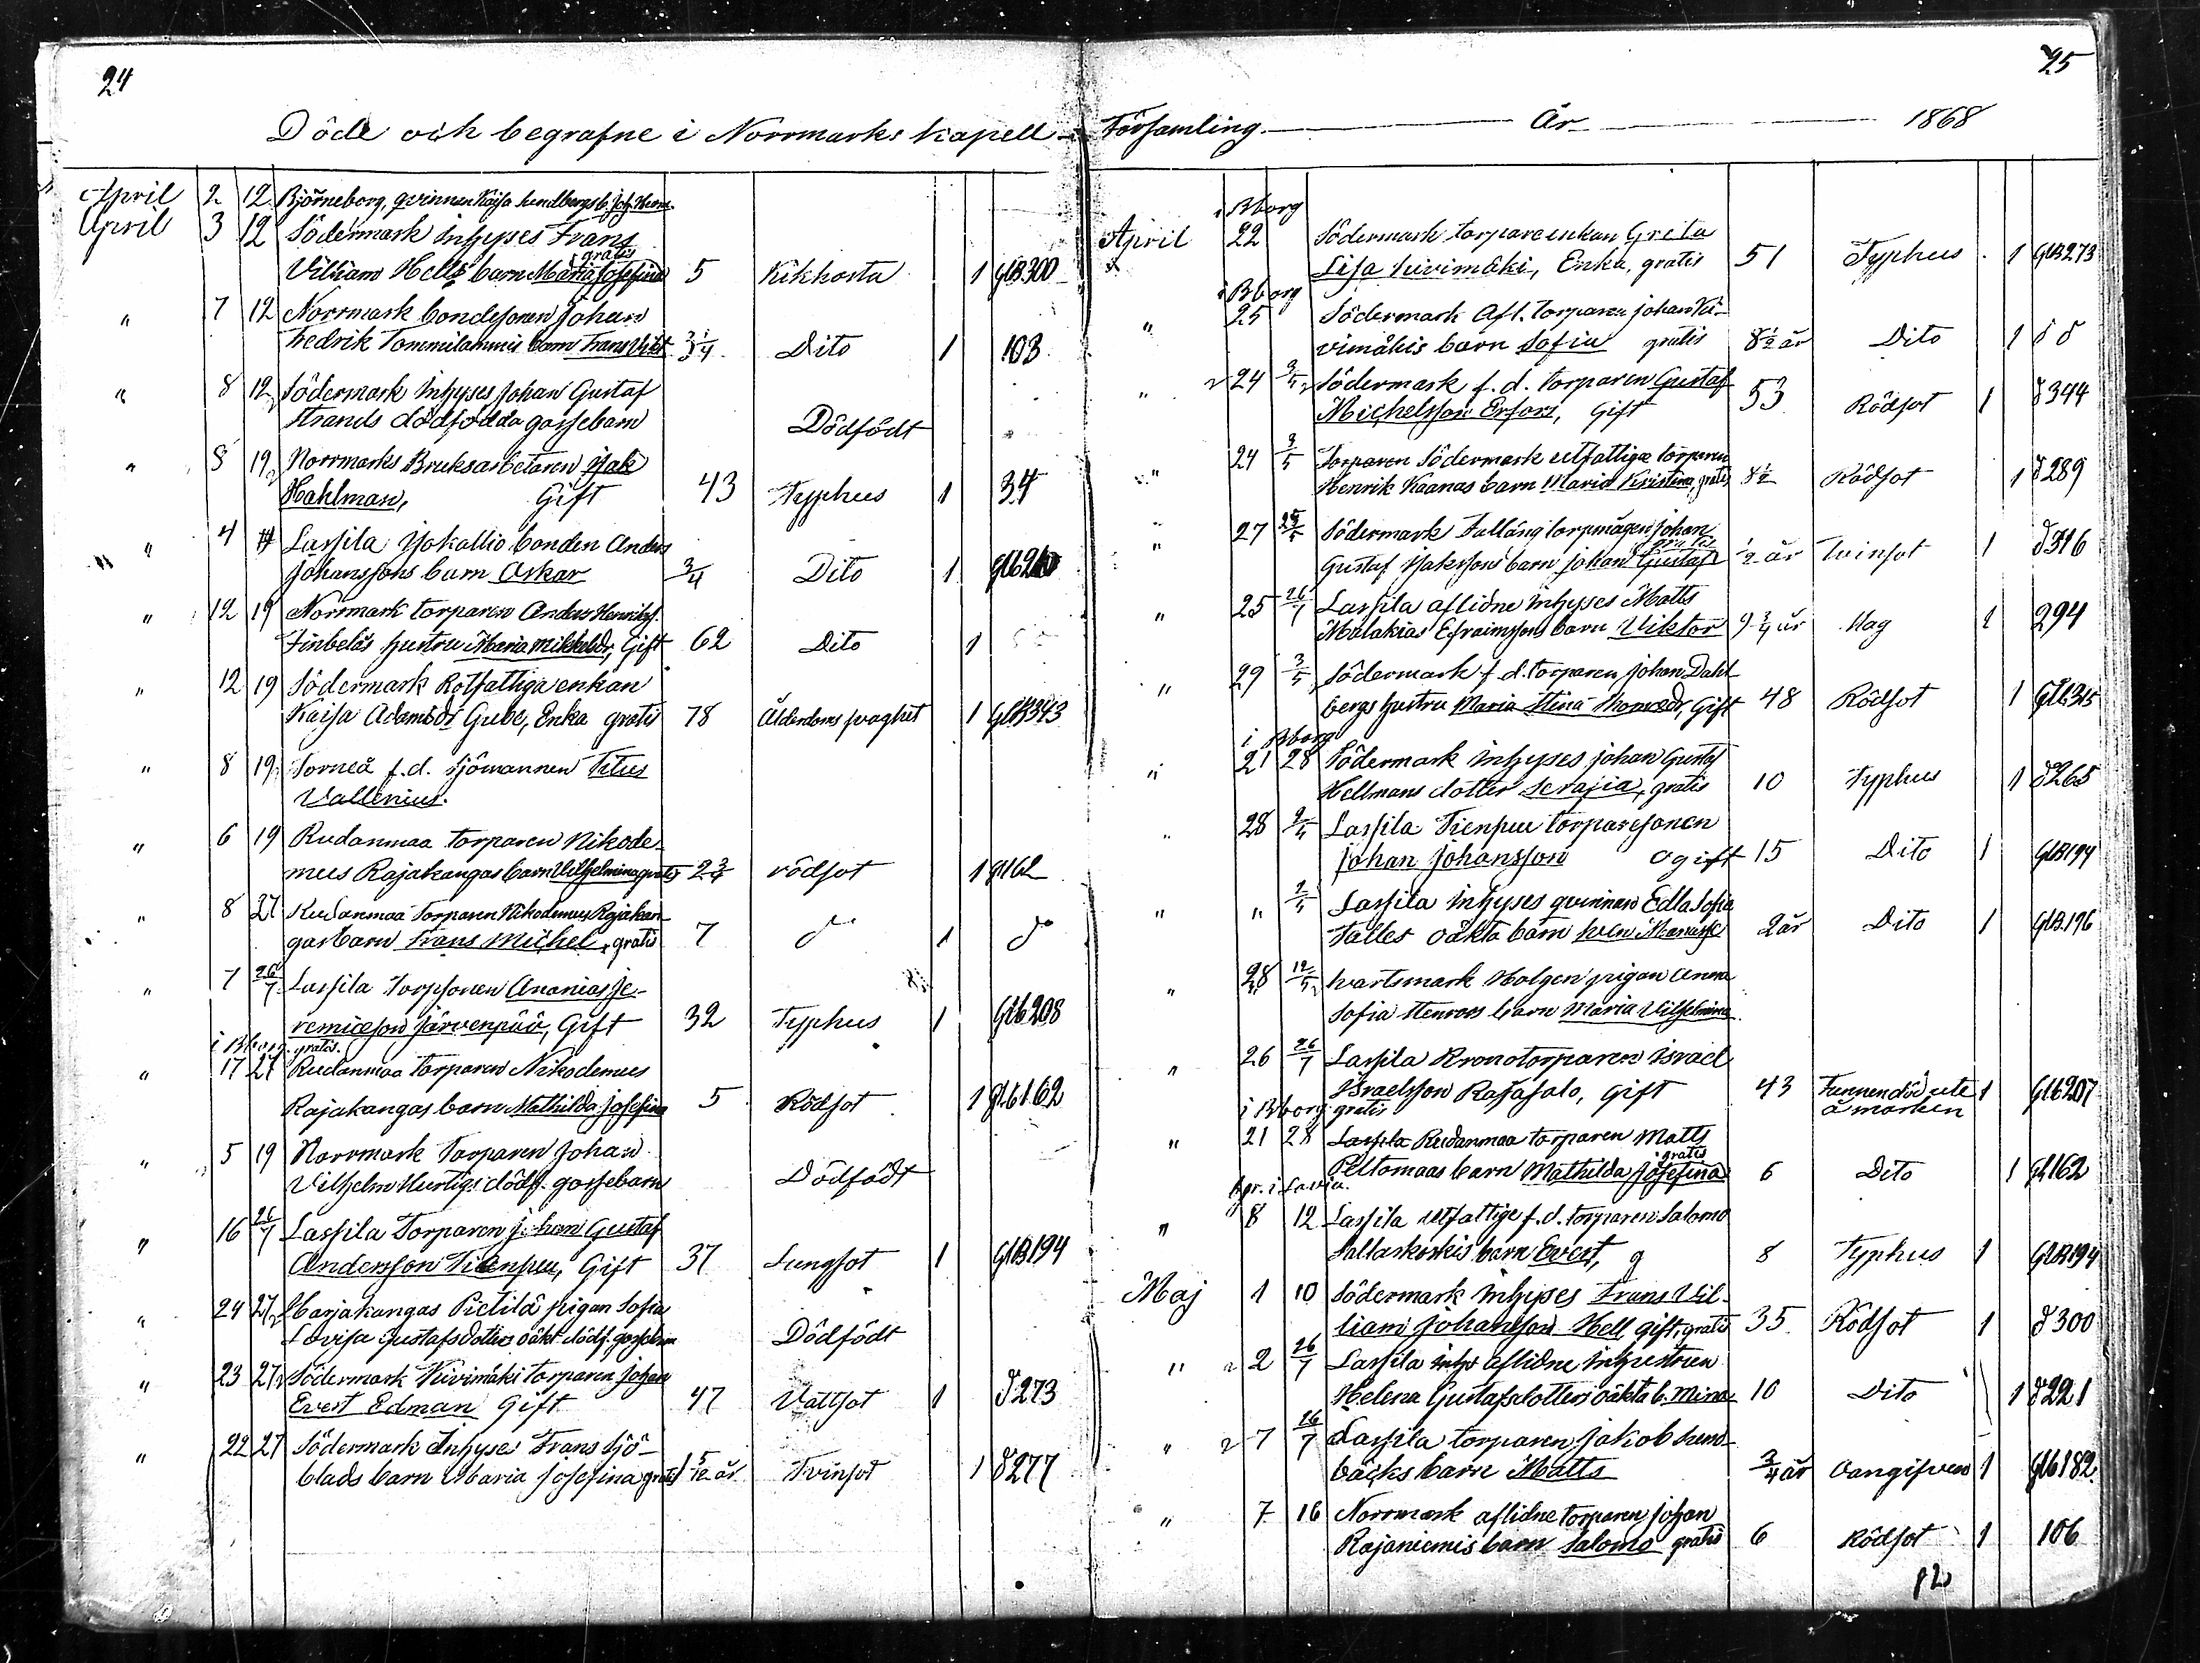 24
Döde och begrafne i Norrmarks Kapell
April 2 12 Björneborg, qvinnan Kajsa Lundbergs b. Joh. Herm.
April 3 12 Södermark Inhyses Frans
gratis
Viliam Hells barn Maria Josefina 5 Kikhosta 1 GlB300
" 7 12 Norrmark bondesonen Johan
Fredrik Tommilammis barn Frans Vilet 3 1/4 Dito 1 103
" 8 12 Södermark Inhyses Johan Gustaf
Strands dödfödda gossebarn Dödfödt
" 8 19 Norrmarks Bruksarbetaren Isak
Hahlman, Gift 43 Typhus 1 34
" 4 Lassila Isokallio bonden Anders
Johanssons barn Oskar 3/4 Dito 1
" 12 19 Norrmark torparen Anders Henriks.
Finbeläs hustru Maria Mikkelsdr, Gift 62 Dito 1
" 12 19 Södermark Rotfattiga enkan
Kaisa Adamsdr Gube, Enka gratis 78 Ålderdoms svaghet 1 GlB343
" 8 19 Torneå f.d. sjömannen Titus
Vallenius.
" 6 19 Rudanmaa torparen Nikode-
mus Rajakangas barn Vilhelmina gratis 2 3/4 rödsot 1 Gl162
" 8 27 Rudanmaa Torparen Nikodemus Rajakan-
gas barn Frans Michel, gratis 7 do 1 do
" 7 26/7 Lassila Torpsonen Ananias Je-
remiasson Järvenpää, Gift 32 Typhus 1 Glb208
i Bborg. gratis.
" 17 27 Rudanmaa torparen Nikodemus
Rajakangas barn Mathilda Josefina 5 Rödsot 1 Glb162
" 5 19 Norrmark Torparen Johan
Vilhelm Hurtigs dödf. gossebarn Dödfödt
" 16 26/7 Lassila Torparen Johan Gustaf
Andersson Tienpuu, Gift 37 Lungsot 1 GlB194
" 24 27 Harjakangas Pietilä pigan Sofia
Lovisa Gustafsdotters oäkt dödf. gossebarn Dödfödt
" 23 27 Södermark Kivimäki torparen Johan
Evert Edman Gift 47 Vattsot 1 d273
" 22 27 Södermark Inhyses Frans Sjö-
blads barn Maria Josefina gratis 5/12 år Tvinsot 1 d277
25
Församling. År 1868
i Bborg
April 22 Södermark torpareenkan Greta
Lisa Kivimäki, Enka, gratis 51 Typhus 1 GlB273
i Bborg
" 25 Södermark Afl. torparen Johan Ki-
vimäkis barn Sofia gratis 8 1/2 år Dito 1 d d
" 24 3/5 Södermark f.d. torparen Gustaf
Michelsson Erfors, Gift 53 Rödsot 1 d344
" 24 3/5 Torparen Södermark utfattige torparen
Henrik Kaanas barn Maria Kristina, gratis 8 1/2 Rödsot 1 d289
" 27 Södermark Falläng torpmågen Johan
gratis
Gustaf Isakssons barn Johan Gustaf 1/2 år Tvinsot 1 d316
" 25 26/7 Lassila aflidne inhyses Matts
Malakias Efraimssons barn Viktor 9 3/4 år Hag 1 294
" 29 3/5 Södermark f.d. torparen Johan Dahl-
bergs hustru Maria Stina Thomasdr, Gift 48 Rödsot 1 Glb315
i Bborg
" 21 28 Södermark Inhyses Johan Gustaf
Hellmans dotter Serafia, gratis 10 Typhus 1 d265
" 28 Lassila Tienpuu torparesonen
Johan Johansson Ogift 15 Dito 1 GlB194
" " Lassila Inhyses qvinnan Edla Sofia
Talles oäkta barn Sven Manasse 2 år Dito 1 GlB.196
" 28 12/5 Svartsmark Holgen pigan Anna
Sofia Stenroos barn Maria Vilhelmina
" 26 26/7 Lassila Kronotorparen Israel
Israelsson Rajasalo, Gift 43 Funnen död ute 1 Glb207
å marken
i Bborg gratis
" 21 28 Lassila Rudanmaa torparen Matts
gratis
Peltomaas barn Mathilda Josefina 6 Dito 1 Gl162
bgr. i Lavia.
" 8 12 Lassila utfattige f.d. torparen Salomo
Sallaskoskis barn Evert, g 8 Typhus 1 GlB194
Maj 1 10 Södermark Inhyses Frans Vil-
liam Johansson Hell gift, gratis 35 Rödsot 1 d300
" 2 26/7 Lassila inhs aflidne inhysetruen
Helena Gustafsdotters oäkta b. Mina 10 Dito 1 d221
" 7 26/7 Lassila torparen Jakob Sund-
bäcks barn Matts 3/4 år Oangifven 1 Glb182
" 7 16 Norrmark aflidne torparen Johan
Rajaniemis barn Salomo gratis 6 Rödsot 1 106